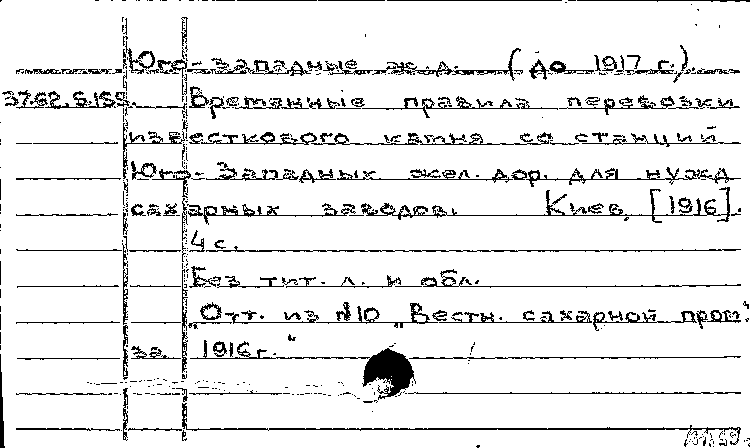 Юго-Западные ж.д. (до 1917 г.).
37.62.5.155. Временные правила перевозки
известкового камня со станций
Юго-Западных жел. дор. для нужд
сахарных заводов. Киев, [1916].
4 с.
Без тит. л. и обл.
„Отт. из №10 „Вестн. сахарной пром."
за 1916 г."